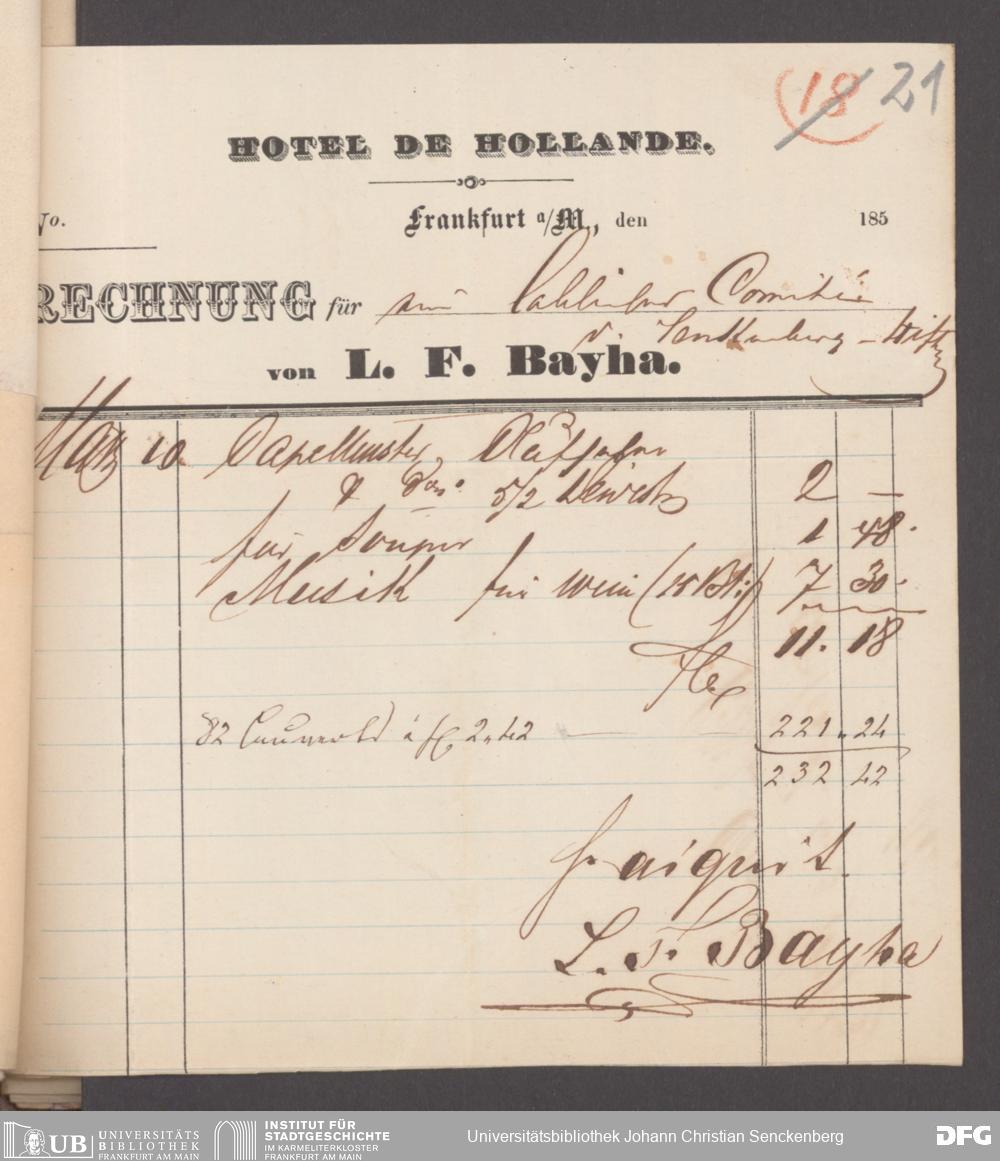 18 21
HOTEL DE HOLLANDE.
No.
Frankfurt a/M., den 185
RECHNUNG für Comité
v. Senkenberg-Stift
von L. F. Bayha.
März 10 Capellmster
& 5/2 2 —
für Souper 1 48.
Musik für Wein (15 Btl) 7 30.
11. 18
82 Couverts à f 2,42 — 221. 24
232 42
L. F. Bayha
UB UNIVERSITÄTS
BIBLIOTHEK
FRANKFURT AM MAIN
INSTITUT FÜR
STADTGESCHICHTE
IM KARMELITERKLOSTER
FRANKFURT AM MAIN
Universitätsbibliothek Johann Christian Senckenberg
DFG